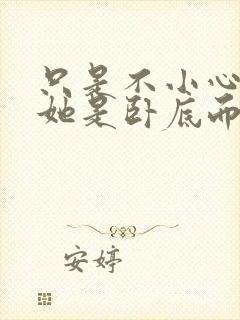 只是不小心
她是卧底而
安婷